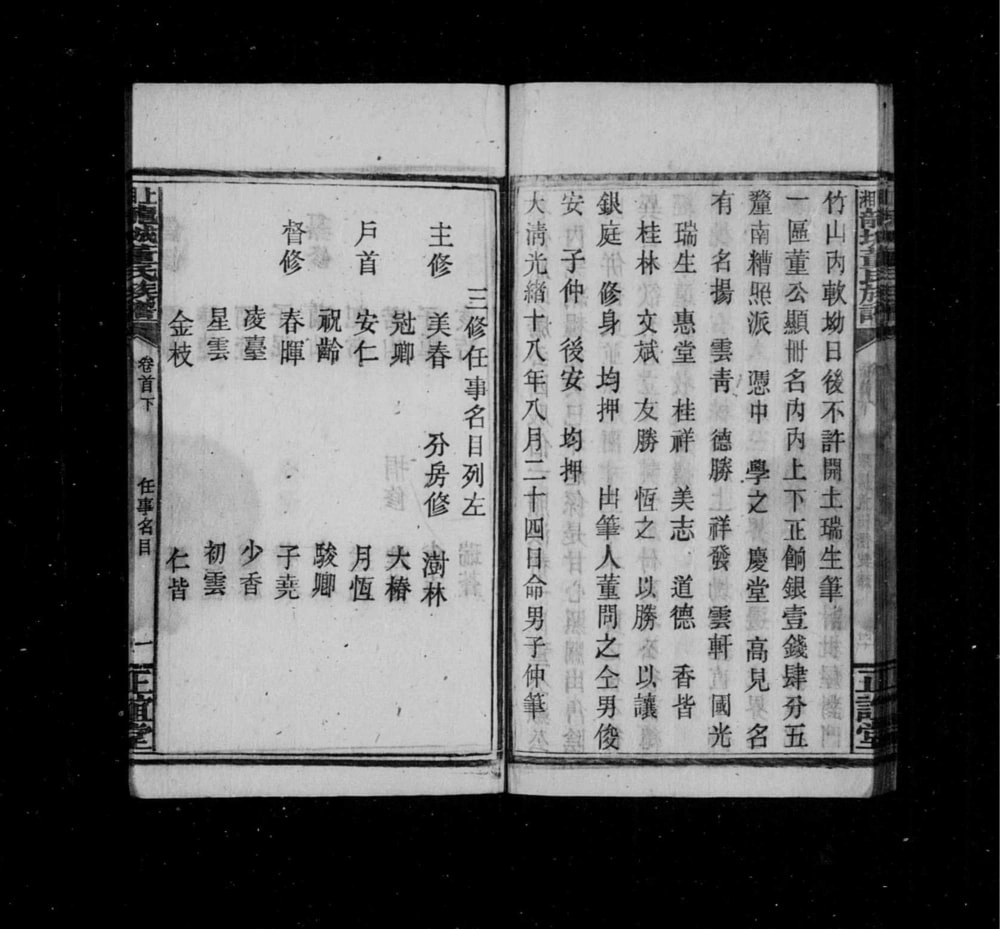 竹山內軟坳日後不許開土瑞生筆
一區董公顯冊名內內上下正餉銀壹錢肆分五
釐南糟照派　憑中　學之　慶堂　高見　名
有　名揚　雲靑　德勝　祥發　雲軒　國光
瑞生　惠堂　桂祥　美志　道德　香皆
桂林　文斌　友勝　恆之　以勝　以讓
銀庭　修身　均押　出筆人董問之仝男俊
安　子仲　後安　均押
大淸光緒十八年八月二十四日命男子仲筆
三修任事名目列左
主修　美春　分房修　澍林
冠卿　大椿
戶首　安仁　月恆
祝齡　駿卿
督修　春暉　子堯
凌臺　少香
星雲　初雲
金枝　仁皆
董氏族譜　卷首下　任事名目　一　正誼堂